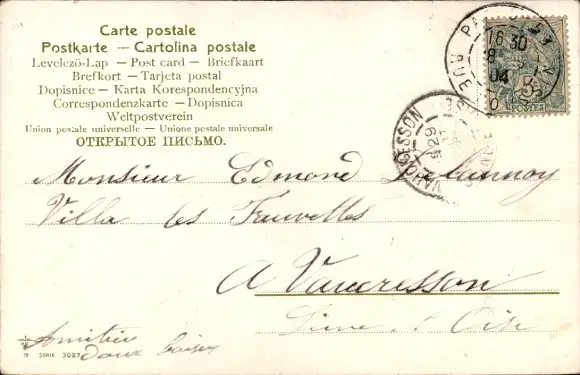 Carte postale
Postkarte — Cartolina postale
Levelező-Lap — Post card — Briefkaart
Brefkort — Tarjeta postal
Dopisnice — Karta Korespondencyjna
Correspondenzkarte — Dopisnica
Weltpostverein
Union postale universelle — Unione postale universale
ОТКРЫТОЕ ПИСЬМО.
16 30
8
04
5
POSTES
VAUCRESSON
Monsieur Edmond Delaunay
Villa les Fauvettes
A Vaucresson
Seine & Oise
Amitiés
doux baisers
19 SERIE 3027